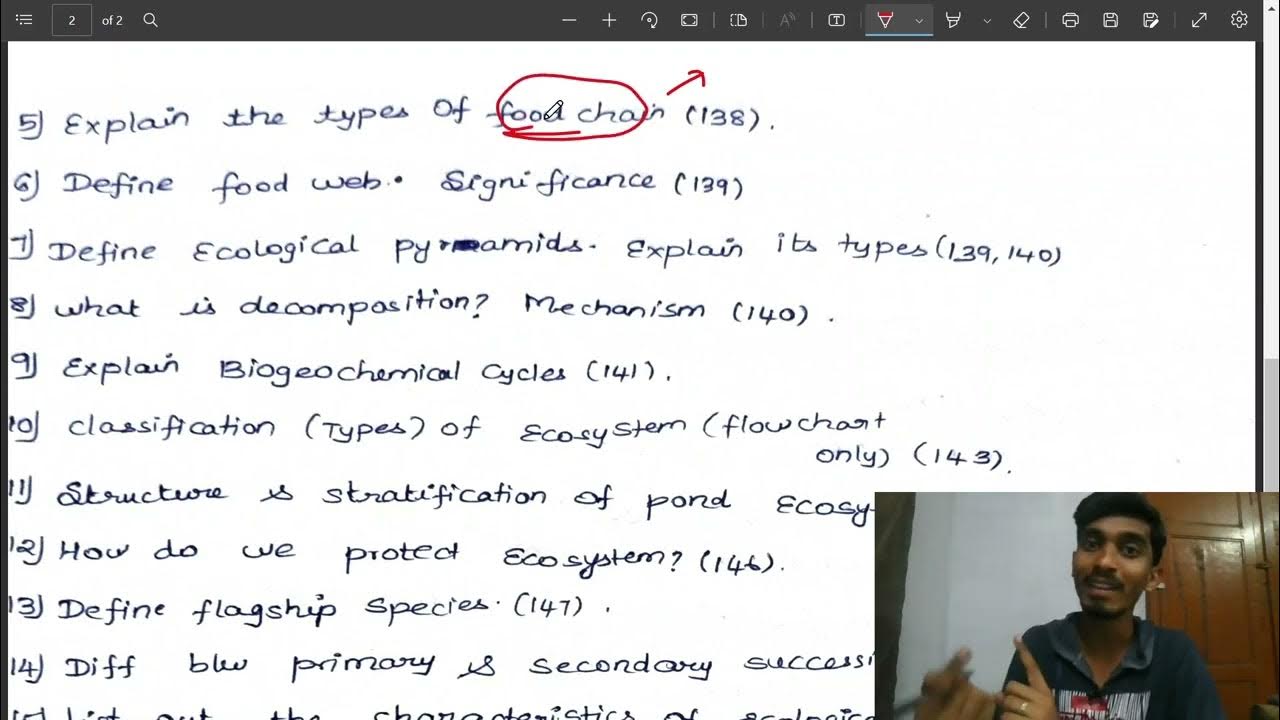 2 of 2
5) Explain the types Of food chain (138).
6) Define food web. Significance (139)
7) Define Ecological pyramids. Explain its types (139, 140)
8) What is decomposition? Mechanism (140).
9) Explain Biogeochemical Cycles (141).
10) Classification (Types) of Ecosystem (flowchart
only) (143).
11) Structure & stratification of pond Ecosy
12) How do we protect Ecosystem? (146).
13) Define flagship Species. (147).
14) Diff b/w primary & secondary successi
List out the characteristics of ecologica